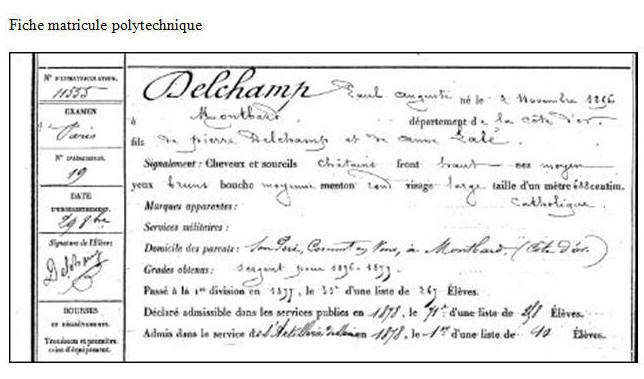 Fiche matricule polytechnique
N° D'IMMATRICULATION.
11555
EXAMEN
Paris
N° D'ADMISSION.
19
DATE
D'ENREGISTREMENT.
29 8bre
Signature de l'Élève:
Delchamp
BOURSES
ET DÉGRÈVEMENTS.
Trousseau et première
mise d'équipement.
Delchamp Paul Auguste né le 2 Novembre 1856
à Montbard département de la Côte d'or.
fils de pierre Delchamp et de anne
Signalement: Cheveux et sourcils châtains front haut nez moyen
yeux bruns bouche moyenne menton rond visage large taille d'un mètre 688 centim.
Marques apparentes: Catholique.
Services militaires:
Domicile des parents: Son Père, à Montbard (Côte d'or.)
Grades obtenus: Sergent pour 1876-1877.
Passé à la 1re division en 1877, le d'une liste de 265 Élèves.
Déclaré admissible dans les services publics en 1878, le 71e d'une liste de Élèves.
Admis dans le service de l'Artillerie en 1878, le 1er d'une liste de 10 Élèves.